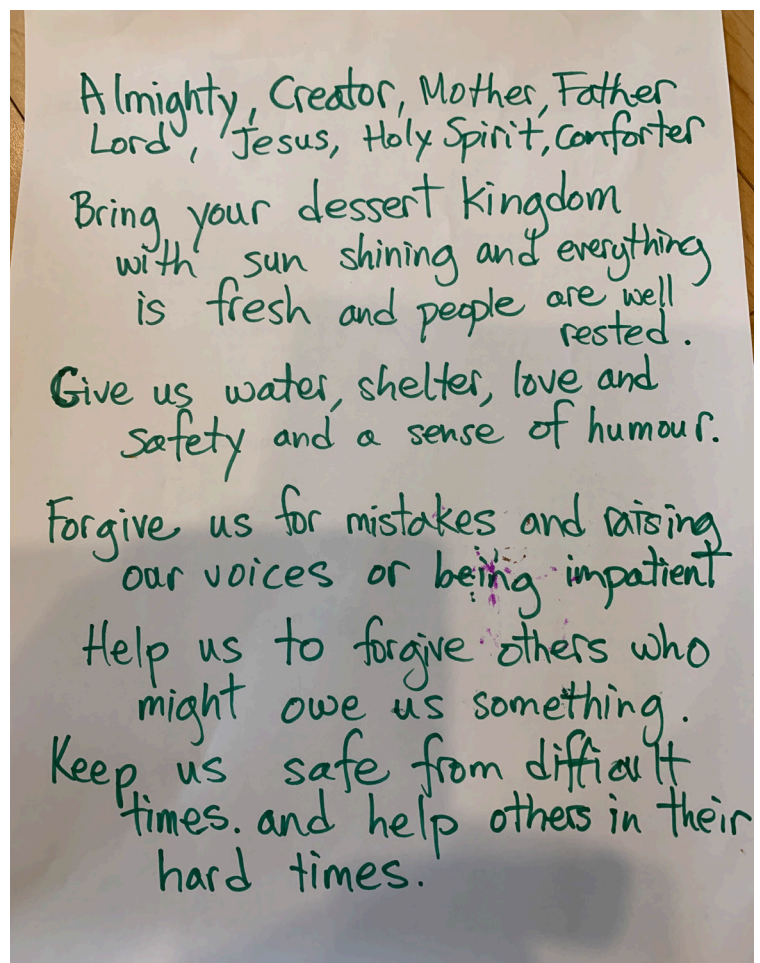 Almighty, Creator, Mother, Father
Lord, Jesus, Holy Spirit, Comforter
Bring your dessert kingdom
with sun shining and everything
is fresh and people are well
rested.
Give us water, shelter, love and
safety and a sense of humour.
Forgive us for mistakes and raising
our voices or being impatient
Help us to forgive others who
might owe us something.
Keep us safe from difficult
times. and help others in their
hard times.